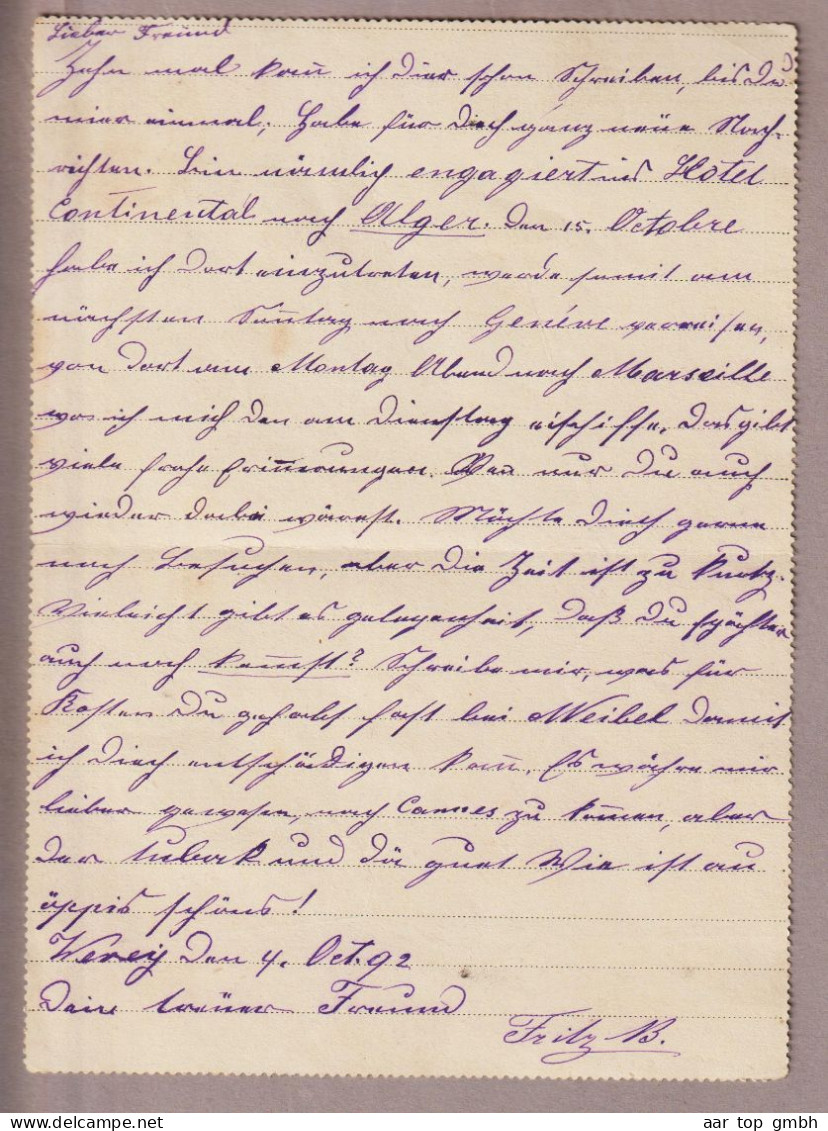 Lieber Freund
Zehn mal kan̄ ich dier schon Schreiben, bis Du
mier einmal, Habe für Dich ganz neue Nach-
richten. Bin nämlich engagiert ins Hotel
Continental nach Alger. Den 15. Octobre
habe ich dort einzutreten, werde somit am
nächsten Son̄tag nach Genéve verreisen,
von dort am Montag Abend nach Marseille
wo ich mich den am Dienstag eischiffe, Das gibt
viele frohe Erin̄erungen. Wen nur Du auch
wieder dabei wärest. Möchte Dich gerne
noch besuchen, aber die Zeit ist zu kurtz.
Vieleicht gibt es gelegenheit, daß Du spähter
auch noch kom̄st? Schreibe mir, was für
Kosten Du gehabt hast bei Weibel damit
ich Dich entschädigen kan̄, Es währe mir
lieber gewesen, nach Cannes zu kom̄en, aber
der tubak und dä guet Wie ist au
äppis schöns!
Vevey den 4. Oct. 92
Dein treuer Freund
Fritz B.
aar top gmbh